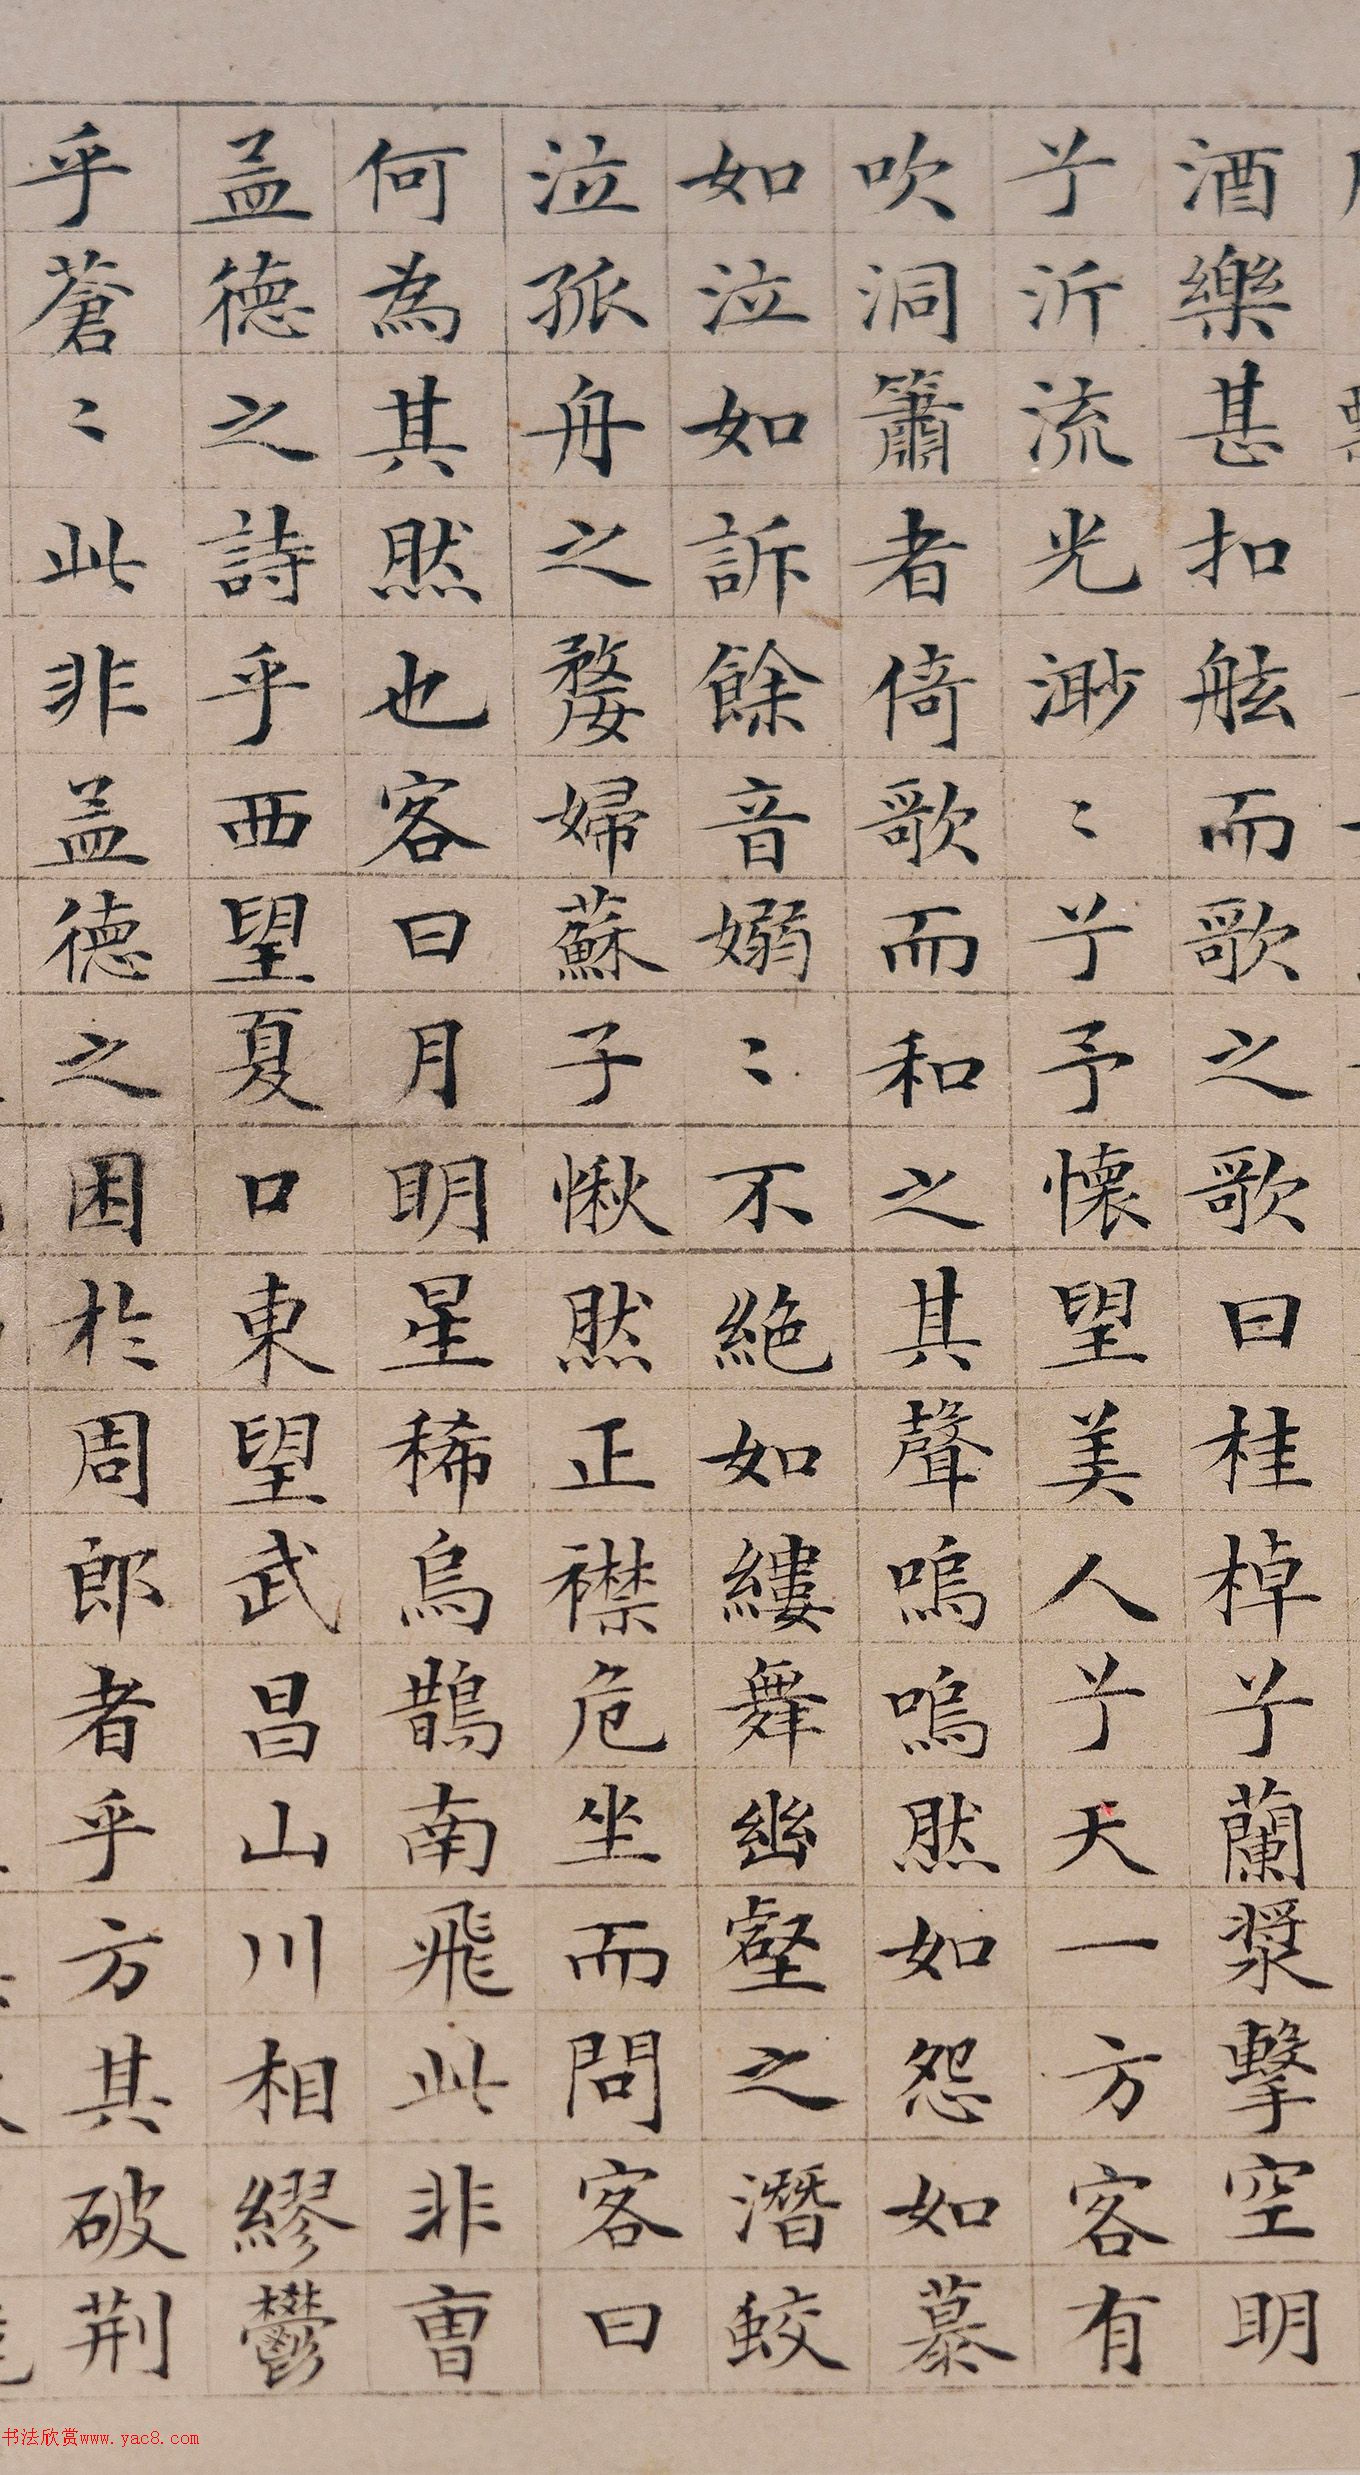 酒樂甚扣舷而歌之歌曰桂棹兮蘭漿擊空明
兮泝流光渺〻兮予懷望美人兮天一方客有
吹洞簫者倚歌而和之其聲嗚嗚然如怨如慕
如泣如訴餘音嫋〻不絕如縷舞幽壑之潛蛟
泣孤舟之嫠婦蘇子愀然正襟危坐而問客曰
何為其然也客曰月明星稀烏鵲南飛此非曹
孟德之詩乎西望夏口東望武昌山川相繆鬱
乎蒼〻此非孟德之困於周郎者乎方其破荊
书法欣赏www.yac8.com